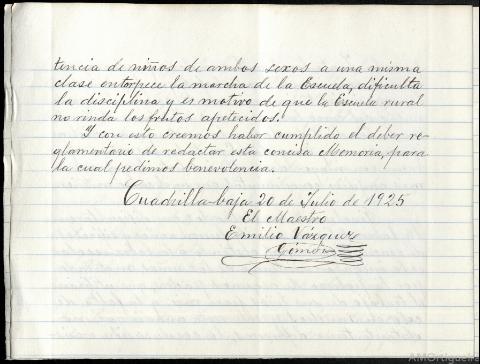 tencia de niños de ambos sexos a una misma
clase entorpece la marcha de la Escuela, dificulta
la disciplina y es motivo de que la Escuela rural
no rinda los frutos apetecidos.
Y con esto creemos haber cumplido el deber re-
glamentario de redactar esta concisa Memoria, para
la cual pedimos benevolencia.
Cuadrilla-baja 20 de Julio de 1925
El Maestro
Emilio Vázquez
AMOrtigueira